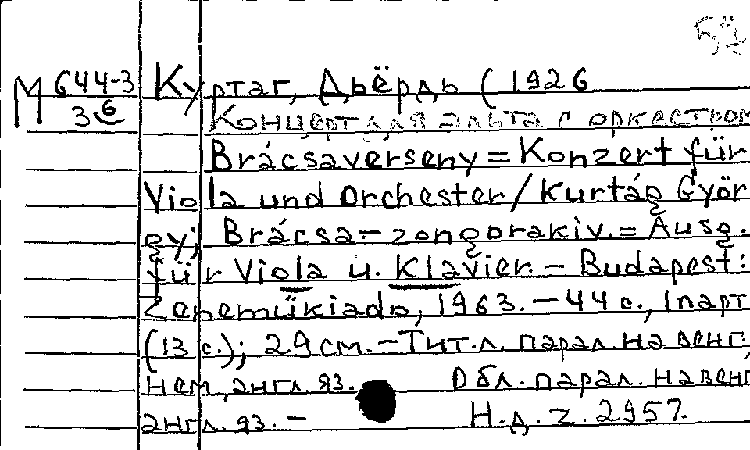 М 644-3
36
Куртаг, Дьёрдь (1926
Концерт для альта с оркестром
Brácsaverseny = Konzert für
Viola und Orchester / Kurtág Györ
gy; Brácsa-zongorakiv. = Ausg.
für Viola u. Klavier. – Budapest:
Zeneműkiadó, 1963. – 44 с., 1 парт
(13 с.); 29 см. – Тит. л. парал. на венг,
нем, англ. яз. Обл. парал. на венг
англ. яз. –
Н.д. Z. 2957.